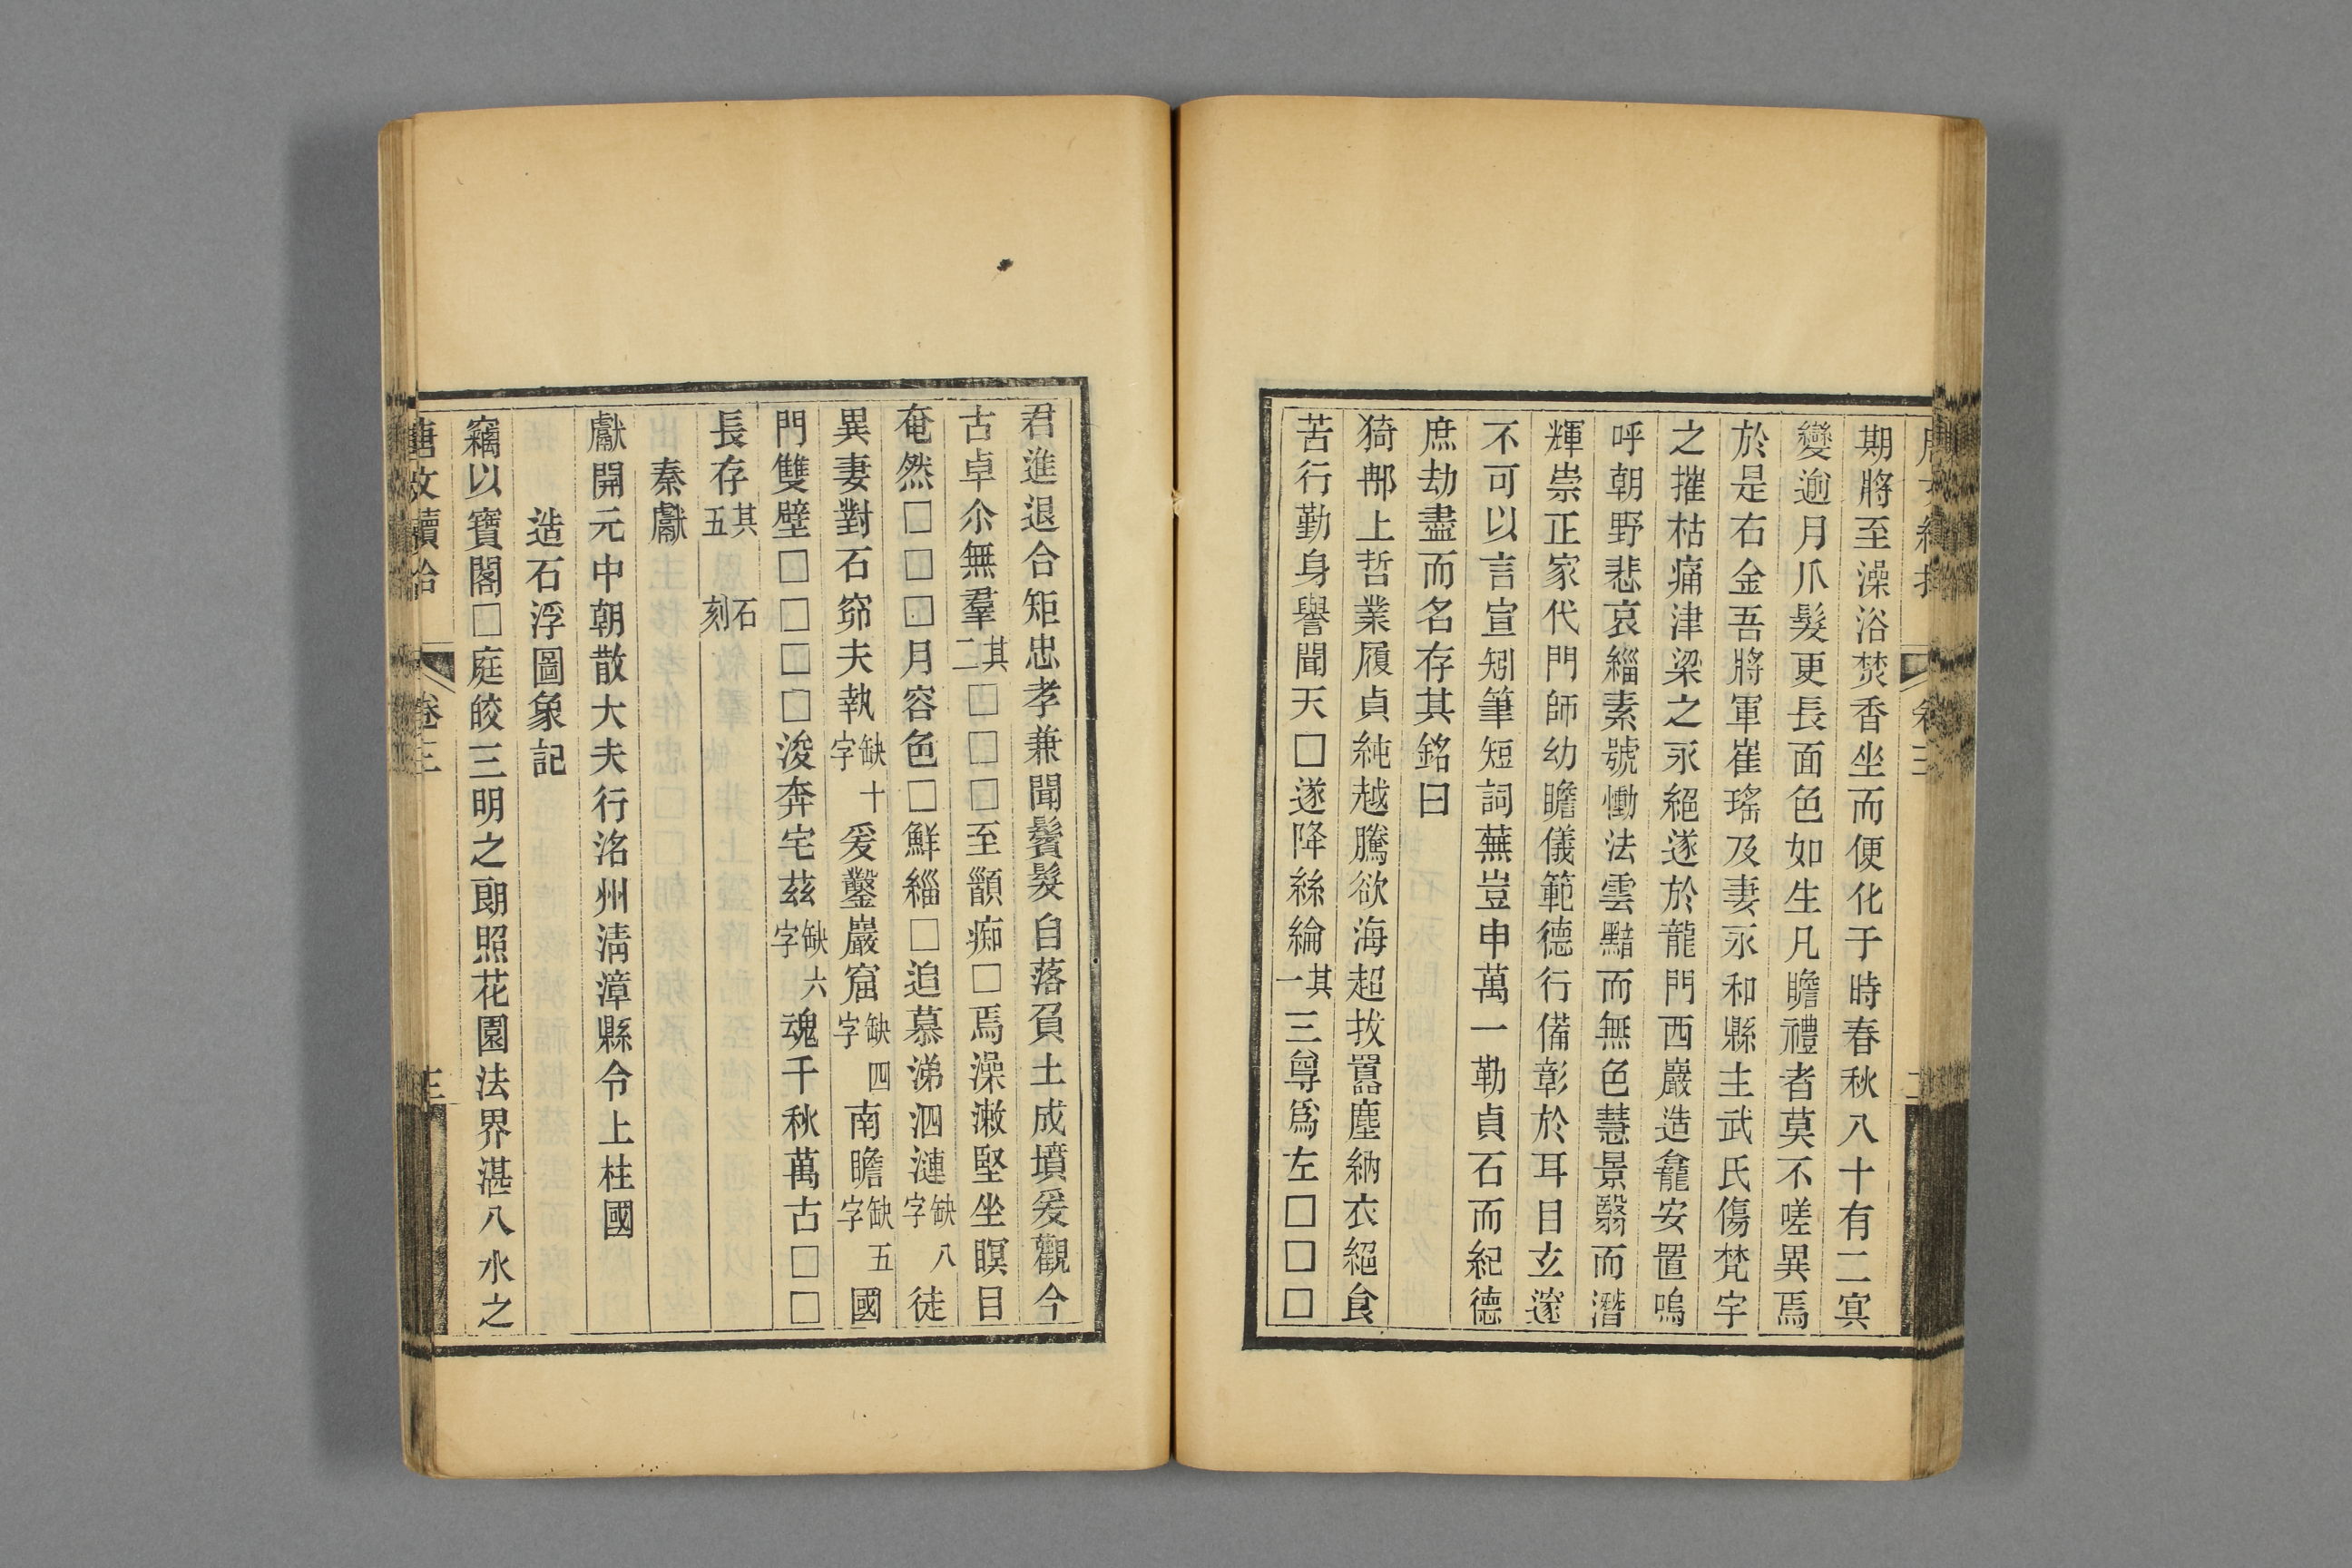 期將至澡浴焚香坐而便化于時春秋八十有二寘
變逾月爪髮更長面色如生凡瞻禮者莫不嗟異焉
於是右金吾將軍崔瑤及妻永和縣主武氏傷梵宇
之摧枯痛津梁之永絕遂於龍門西巖造龕安置嗚
呼朝野悲哀緇素號慟法雲黯而無色慧景翳而潛
輝崇正家代門師幼瞻儀範德行備彰於耳目玄邃
不可以言宣矧筆短詞蕪豈申萬一勒貞石而紀德
庶劫盡而名存其銘曰
猗郍上哲業履貞純越騰欲海超拔囂塵納衣絕食
苦行勤身譽聞天□遂降絲綸其一三尊爲左□□□
君進退合矩忠孝兼聞鬢髮自落負土成墳爰觀今
古卓尒無羣其二□□□至顗痴□焉澡漱堅坐瞑目
奄然□□□月容色□鮮緇□追慕涕泗漣缺八字徒
異妻對石窌夫執缺十字爰鑿巖窟缺四字南瞻缺五字國
門雙壁□□□□浚奔宅茲缺六字魂千秋萬古□□
長存其五　石刻
秦獻
獻開元中朝散大夫行洺州清漳縣令上柱國
造石浮圖象記
竊以寶閣□庭皎三明之朗照花園法界湛八水之
唐文續拾　卷三　三